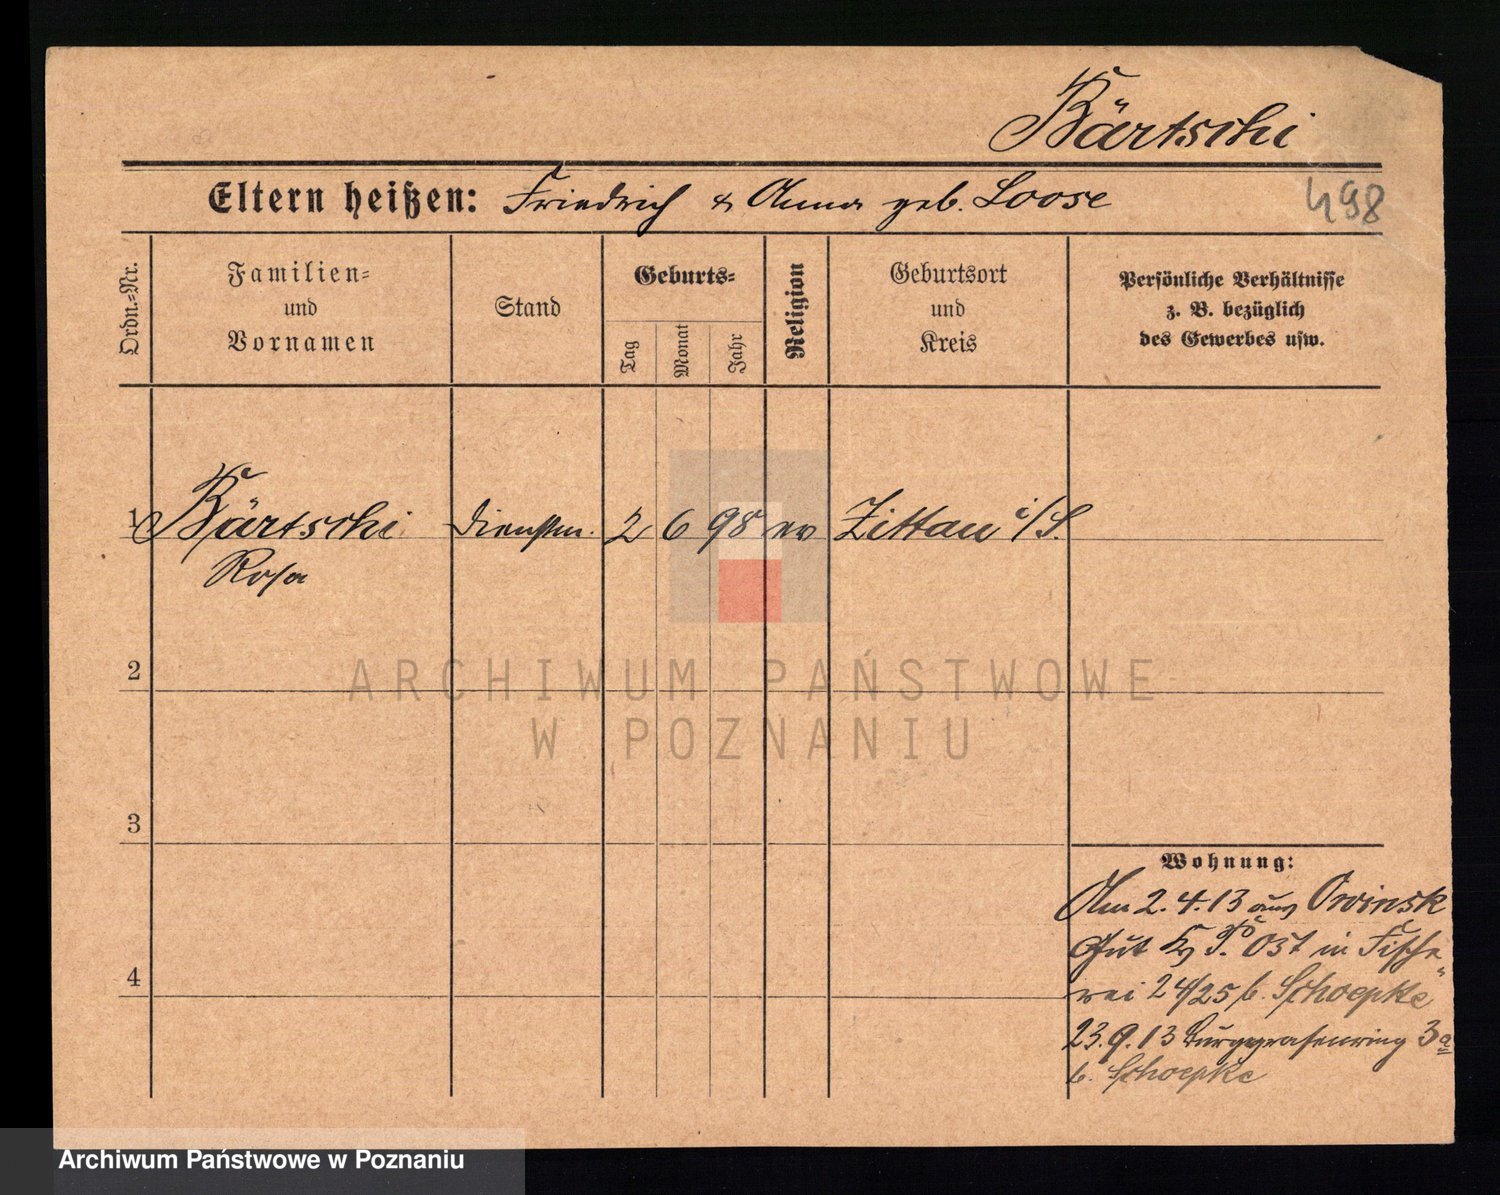 Bärtschi
Eltern heißen: Friedrich & Anna geb. Loose
498
Ordn.-Nr.
Familien-
und
Vornamen
Stand
Geburts-
Tag
Monat
Jahr
Religion
Geburtsort
und
Kreis
Persönliche Verhältnisse
z. B. bezüglich
des Gewerbes usw.
1 Bärtschi Dienstm. 2 6 98 ev Zittau i/S.
Rosa
2
3
4
Wohnung:
Am 2.4.13 aus Owinsk
Gut Kr P. Ost in Fische
rei 24/25 b. Schoepke
23.9.13 Burggrafenring 3a
b. Schoepke
ARCHIWUM PAŃSTWOWE
W POZNANIU
Archiwum Państwowe w Poznaniu